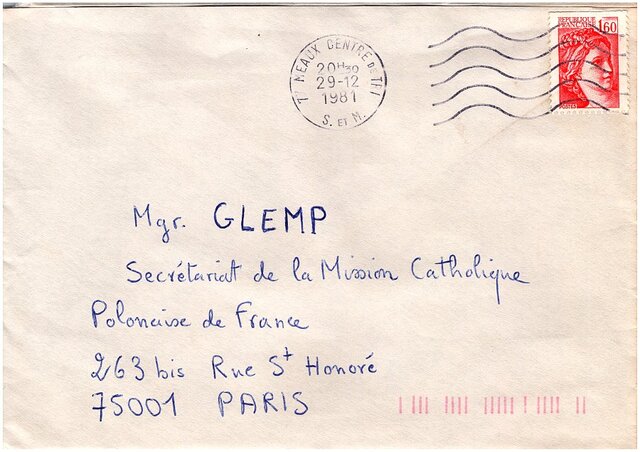 77 MEAUX CENTRE DE TRI
20H30
29-12
1981
S. ET M.
REPUBLIQUE
FRANCAISE 1,60
Mgr. GLEMP
Secrétariat de la Mission Catholique
Polonaise de France
263 bis Rue St Honoré
75001 PARIS